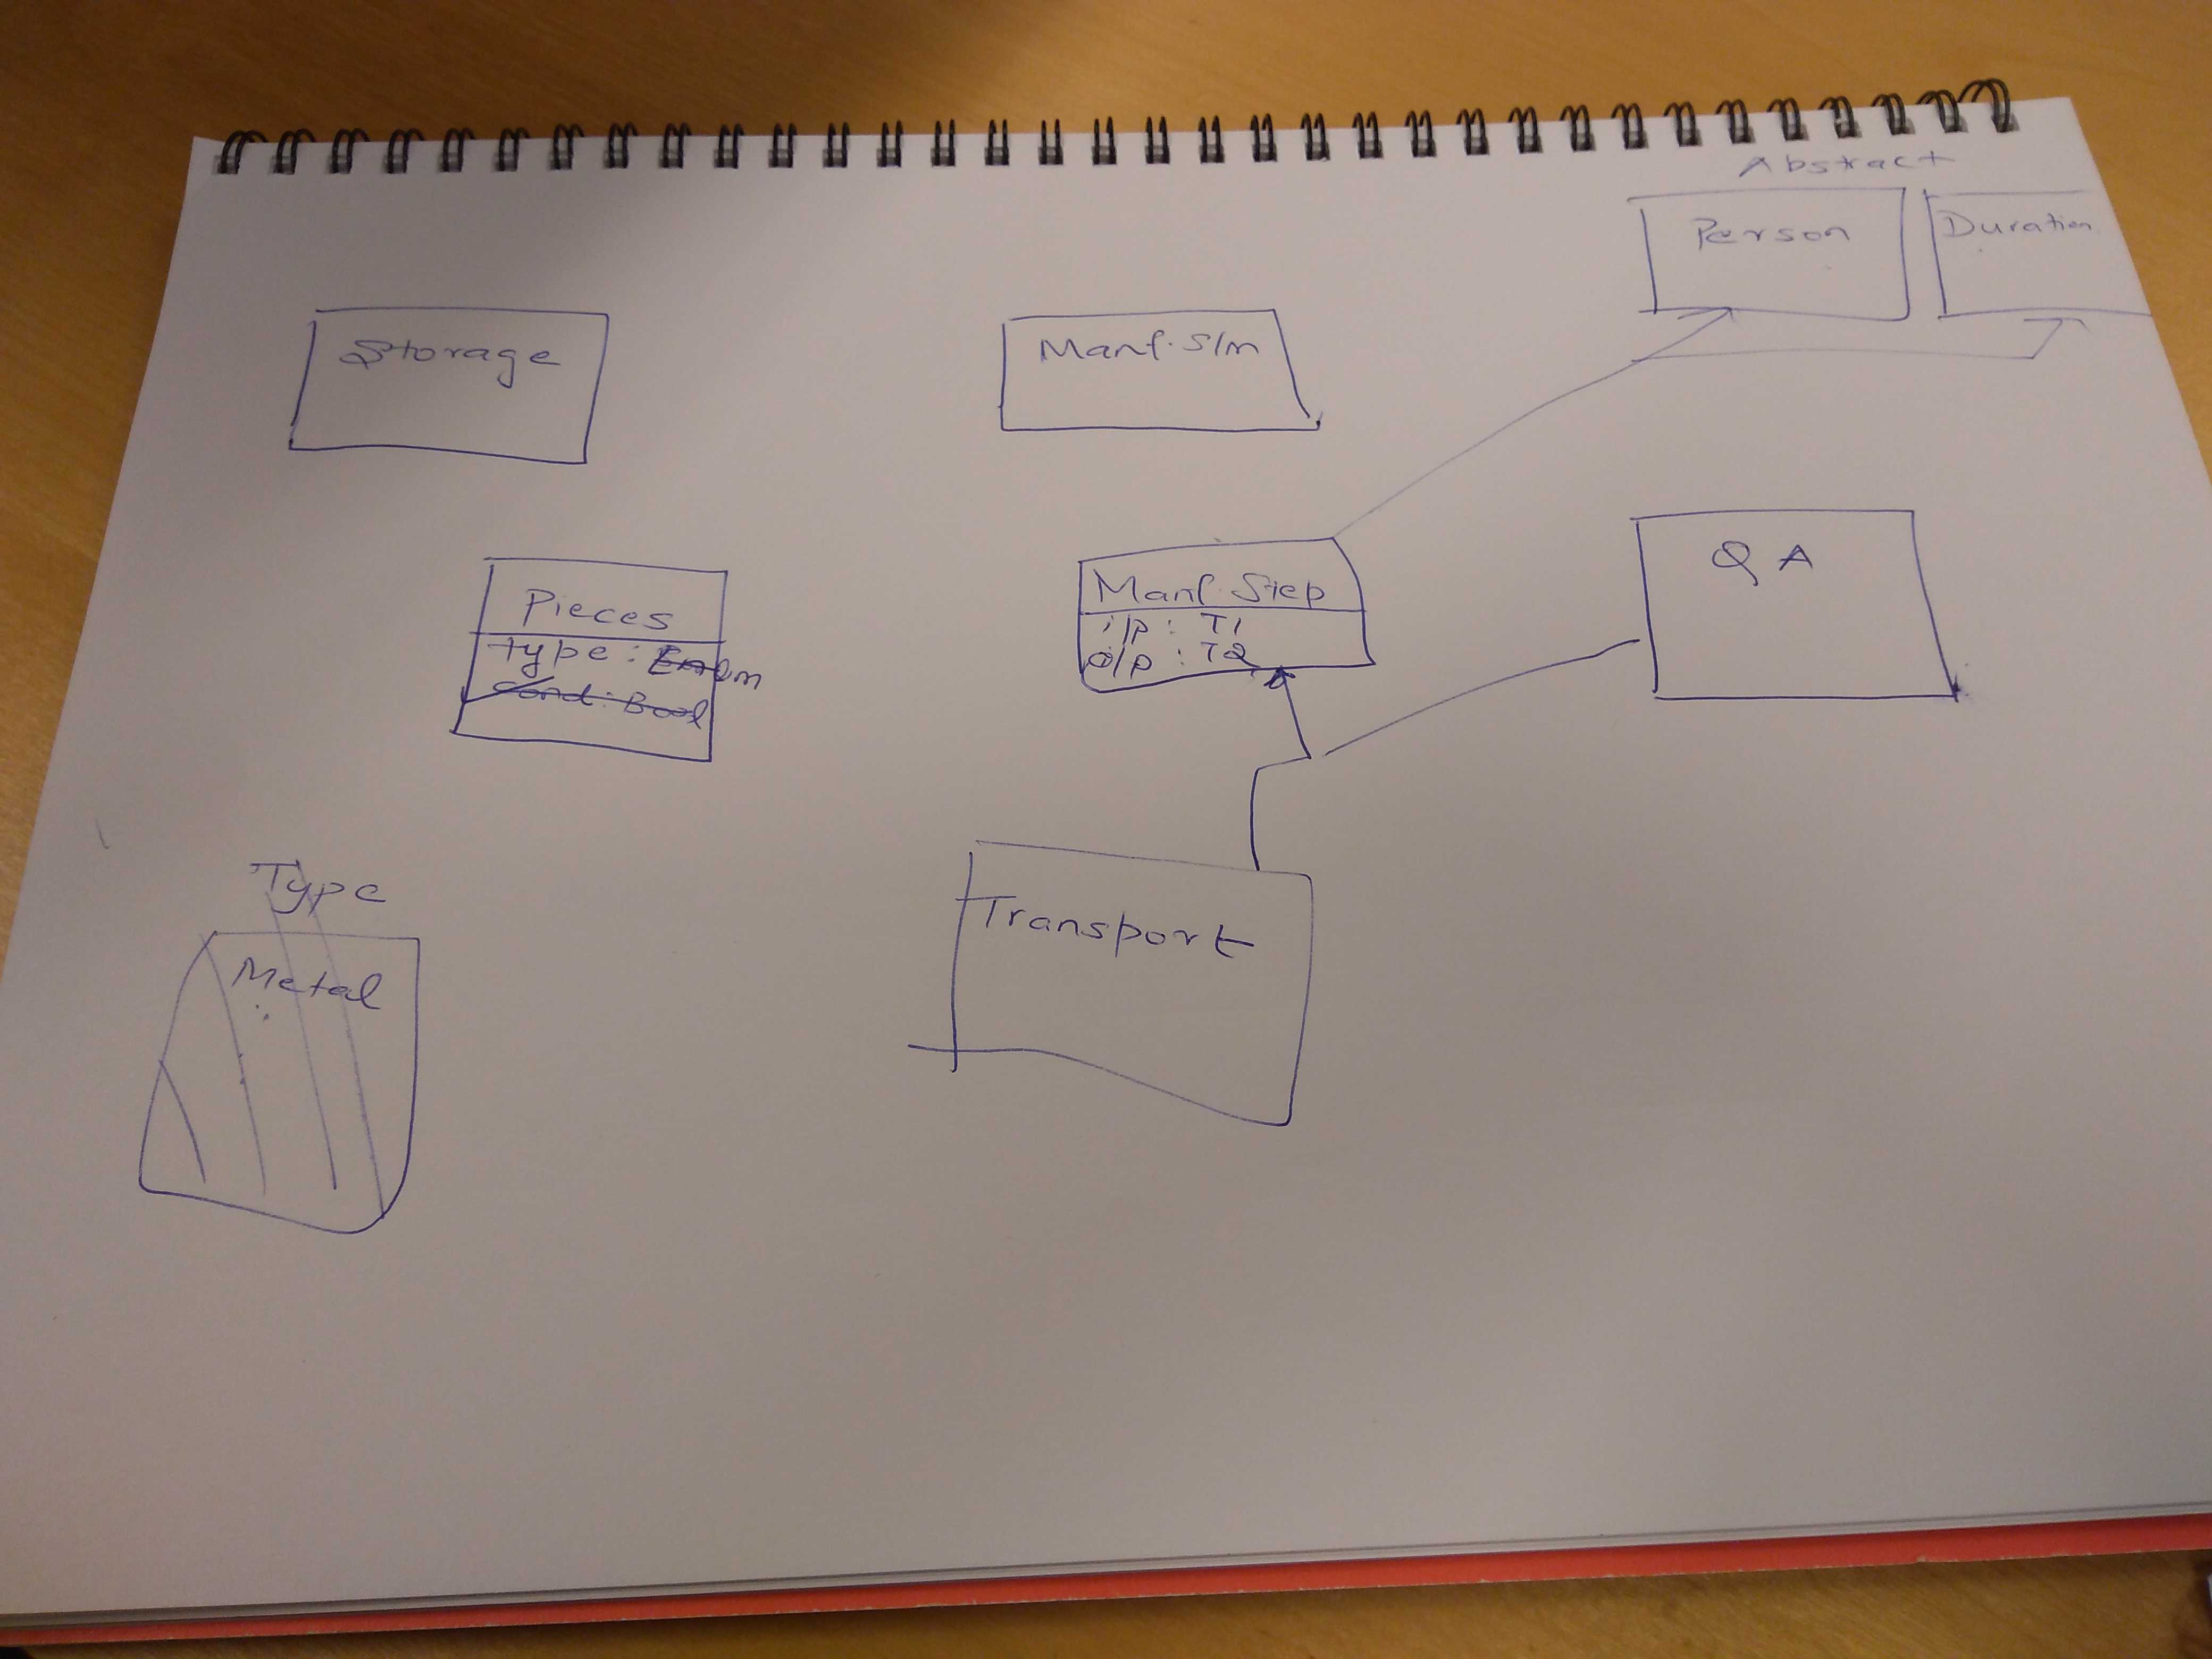 Abstract
Person
Duration
Storage
Manf. S/m
Pieces
type: Enum
Cond: Bool
Manf. Step
i/p : T1
o/p : T2
QA
Type
Metal
Transport